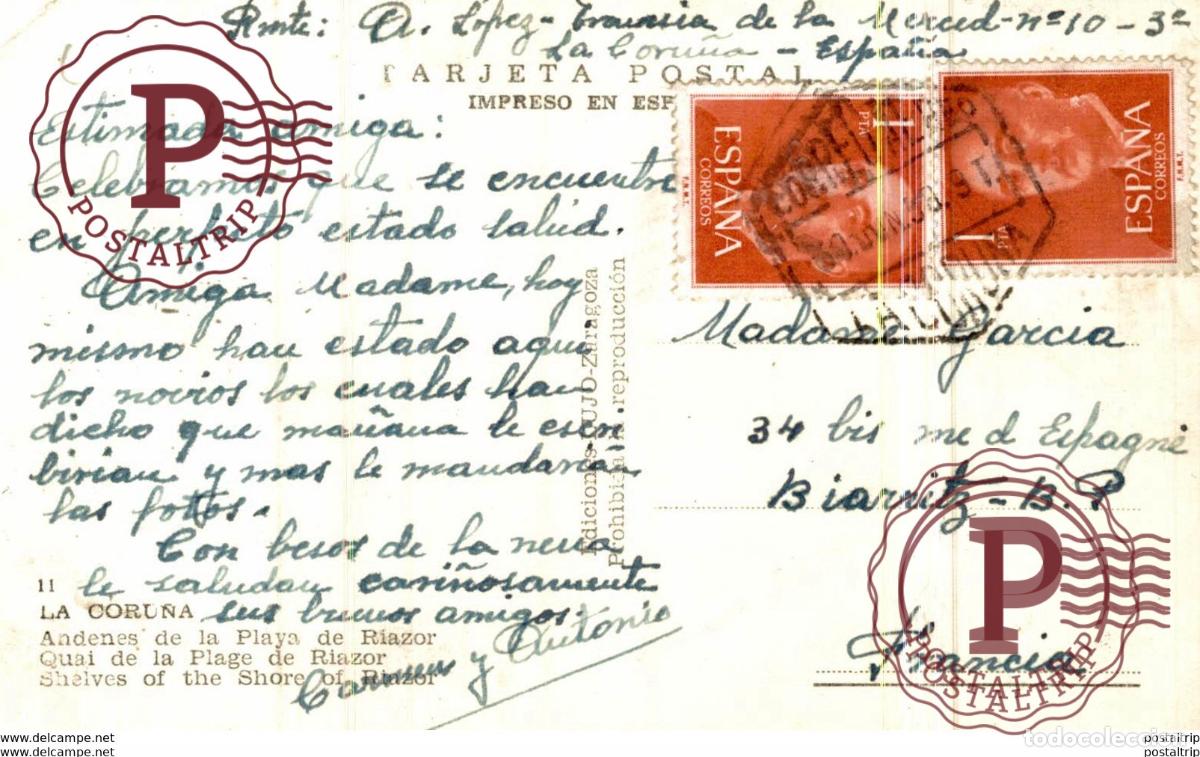 Rmte: A. López - Travesia de la Merced - nº 10 - 3º
La Coruña - España
TARJETA POSTAL
IMPRESO EN ESP
Estimada amiga:
Celebramos que se encuentre
en perfeto estado salud.
Amiga Madame, hoy
mismo han estado aqui
los novios los cuales han
dicho que mañana le escri
birian y mas le mandaran
las fotos.
Con besos de la nena
le saludan cariñosamente
sus buenos amigos.
Carmen y Antonio
11
LA CORUÑA
Andenes de la Playa de Riazor
Quai de la Plage de Riazor
Shelves of the Shore of Riazor
Ediciones DUJO-Zaragoza
Prohibida la reproducción
ESPAÑA
CORREOS
1 PTA
F.N.M.T.
ESPAÑA
CORREOS
1 PTA
F.N.M.T.
CORREO AEREO
LA CORUÑA
Madame Garcia
34 bis
Espagne
Biarritz - B.P
Francia
P
POSTALTRIP
P
POSTALTRIP
POSTALTRIP
todocoleccion
www.delcampe.net
postaltrip
www.delcampe.net
postaltrip